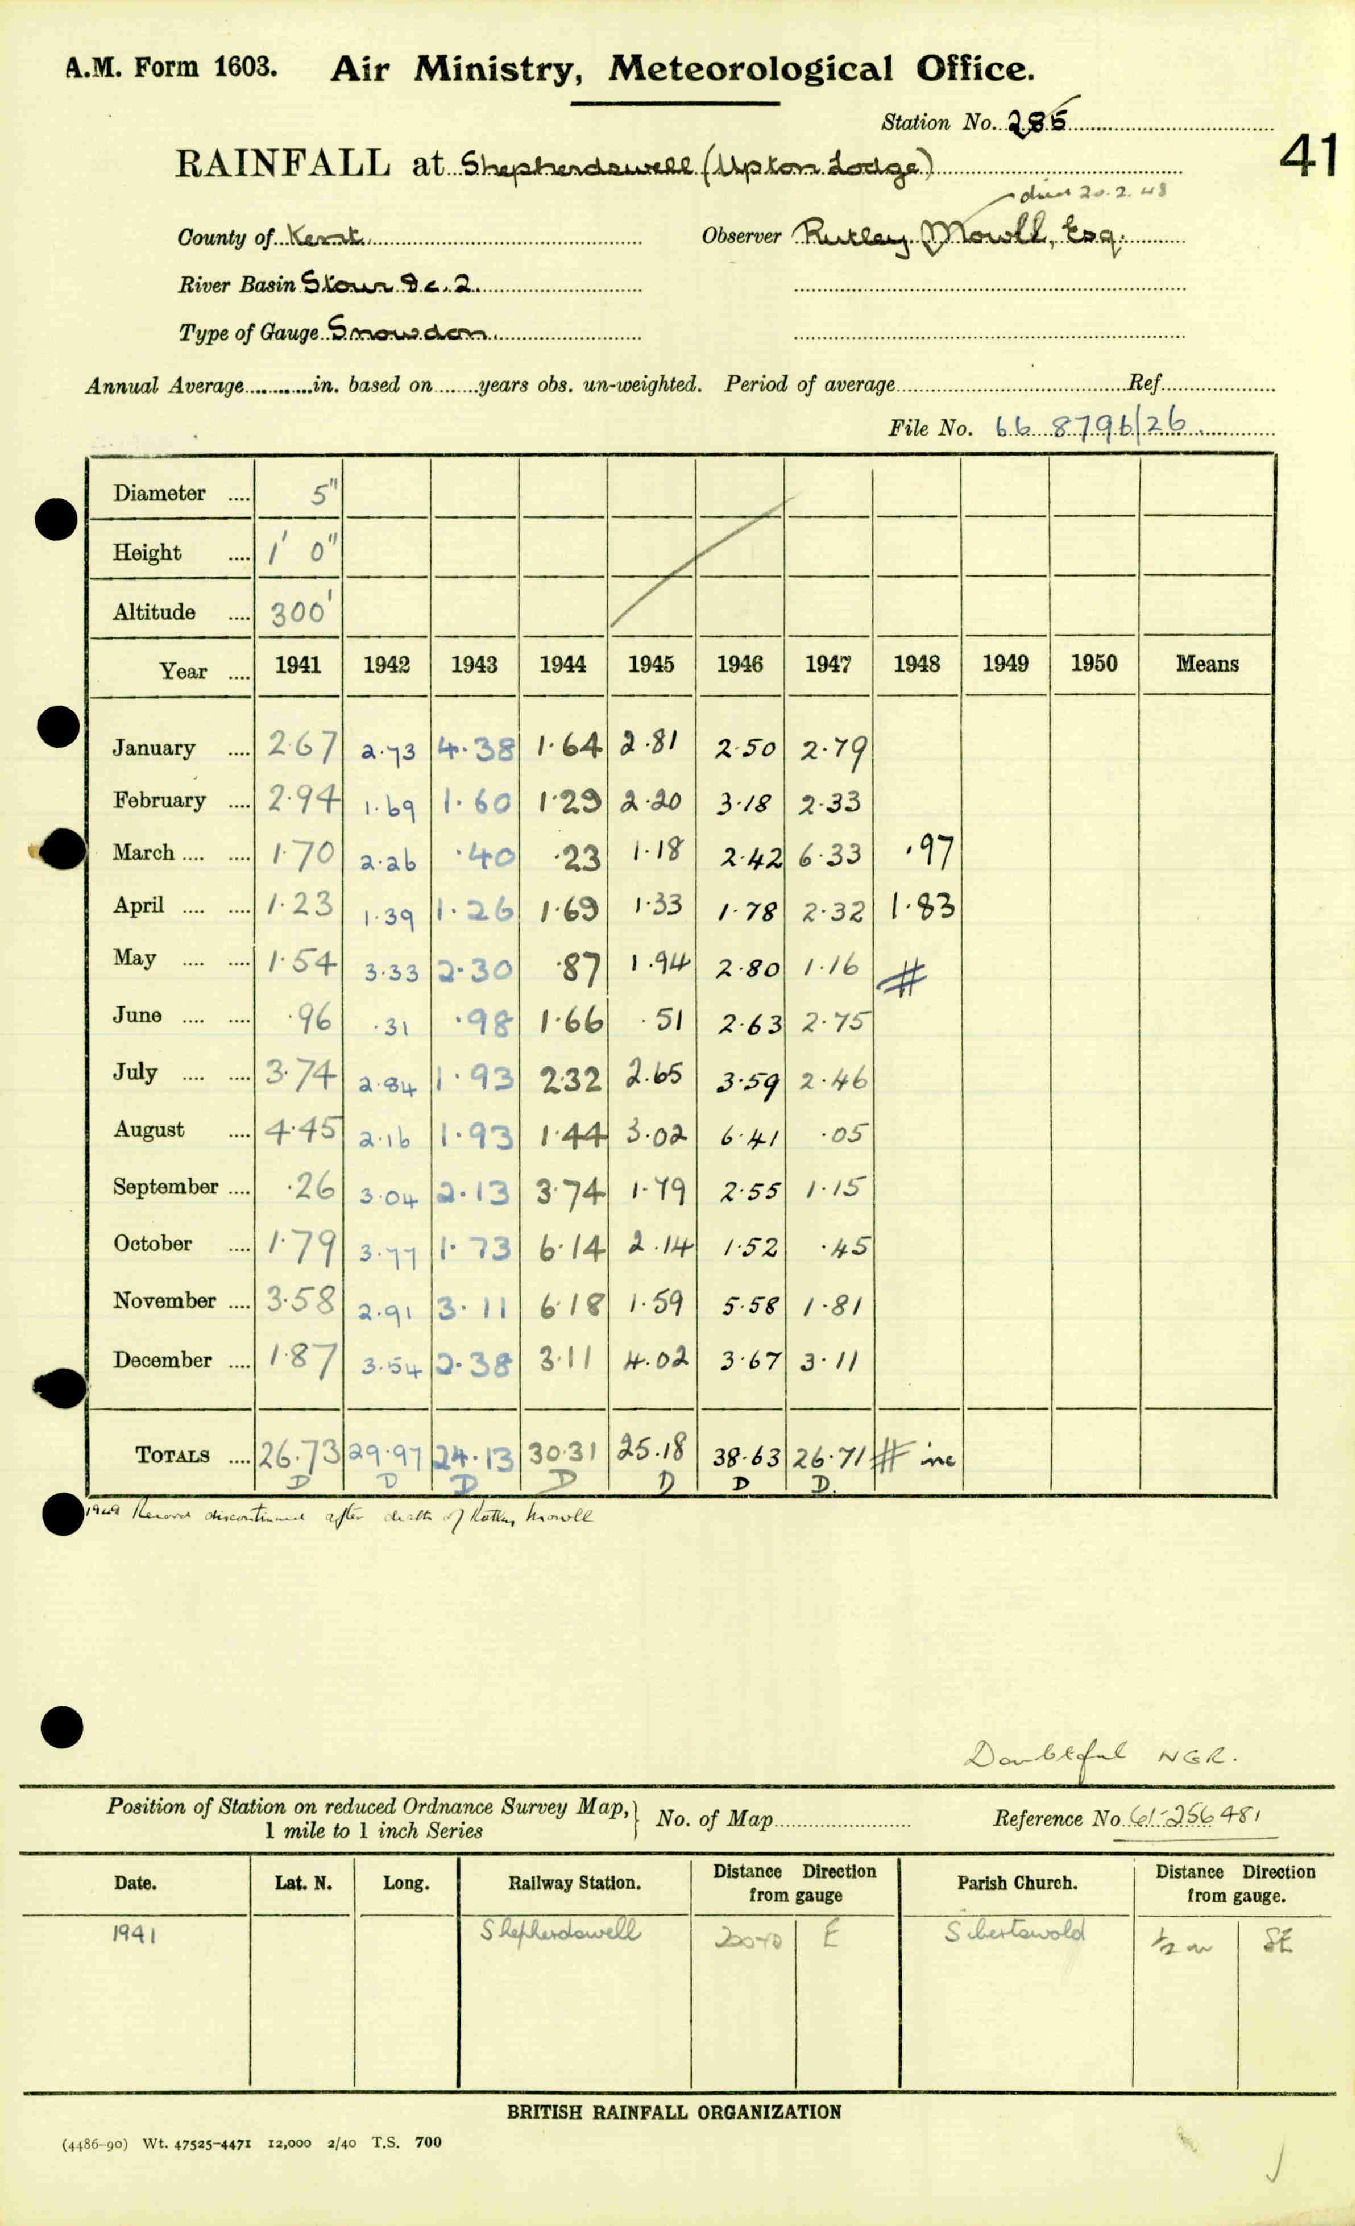 A.M. Form 1603. Air Ministry, Meteorological Office.
Station No. 285
41
RAINFALL at Shepherdswell (Upton Lodge)
died 20.2.48
County of Kent. Observer Rutley Mowll, Esq.
River Basin Stour &c. 2.
Type of Gauge Snowdon.
Annual Average............in. based on.......years obs. un-weighted. Period of average........Ref........
File No. 66 8796/26
Diameter .... 5"
Height .... 1' 0"
Altitude .... 300'
Year .... 1941 1942 1943 1944 1945 1946 1947 1948 1949 1950 Means
January .... 2.67 2.73 4.38 1.64 2.81 2.50 2.79
February .... 2.94 1.69 1.60 1.29 2.20 3.18 2.33
March .... .... 1.70 2.26 .40 .23 1.18 2.42 6.33 .97
April .... .... 1.23 1.39 1.26 1.69 1.33 1.78 2.32 1.83
May .... .... 1.54 3.33 2.30 .87 1.94 2.80 1.16 #
June .... .... .96 .31 .98 1.66 .51 2.63 2.75
July .... .... 3.74 2.84 1.93 2.32 2.65 3.59 2.46
August .... 4.45 2.16 1.93 1.44 3.02 6.41 .05
September .... .26 3.04 2.13 3.74 1.79 2.55 1.15
October .... 1.79 3.77 1.73 6.14 2.14 1.52 .45
November .... 3.58 2.91 3.11 6.18 1.59 5.58 1.81
December .... 1.87 3.54 2.38 3.11 4.02 3.67 3.11
TOTALS .... 26.73 29.97 24.13 30.31 25.18 38.63 26.71 # inc
D D D D D D D.
1949 Record discontinued after death of Rutley Mowll
Doubtful NGR.
Position of Station on reduced Ordnance Survey Map, 1 mile to 1 inch Series } No. of Map........ Reference No. 61-256481
Date. Lat. N. Long. Railway Station. Distance Direction from gauge Parish Church. Distance Direction from gauge.
1941 Shepherdswell E Sibertswold ½ m SE
BRITISH RAINFALL ORGANIZATION
(4486-90) Wt. 47525-4471 12,000 2/40 T.S. 700